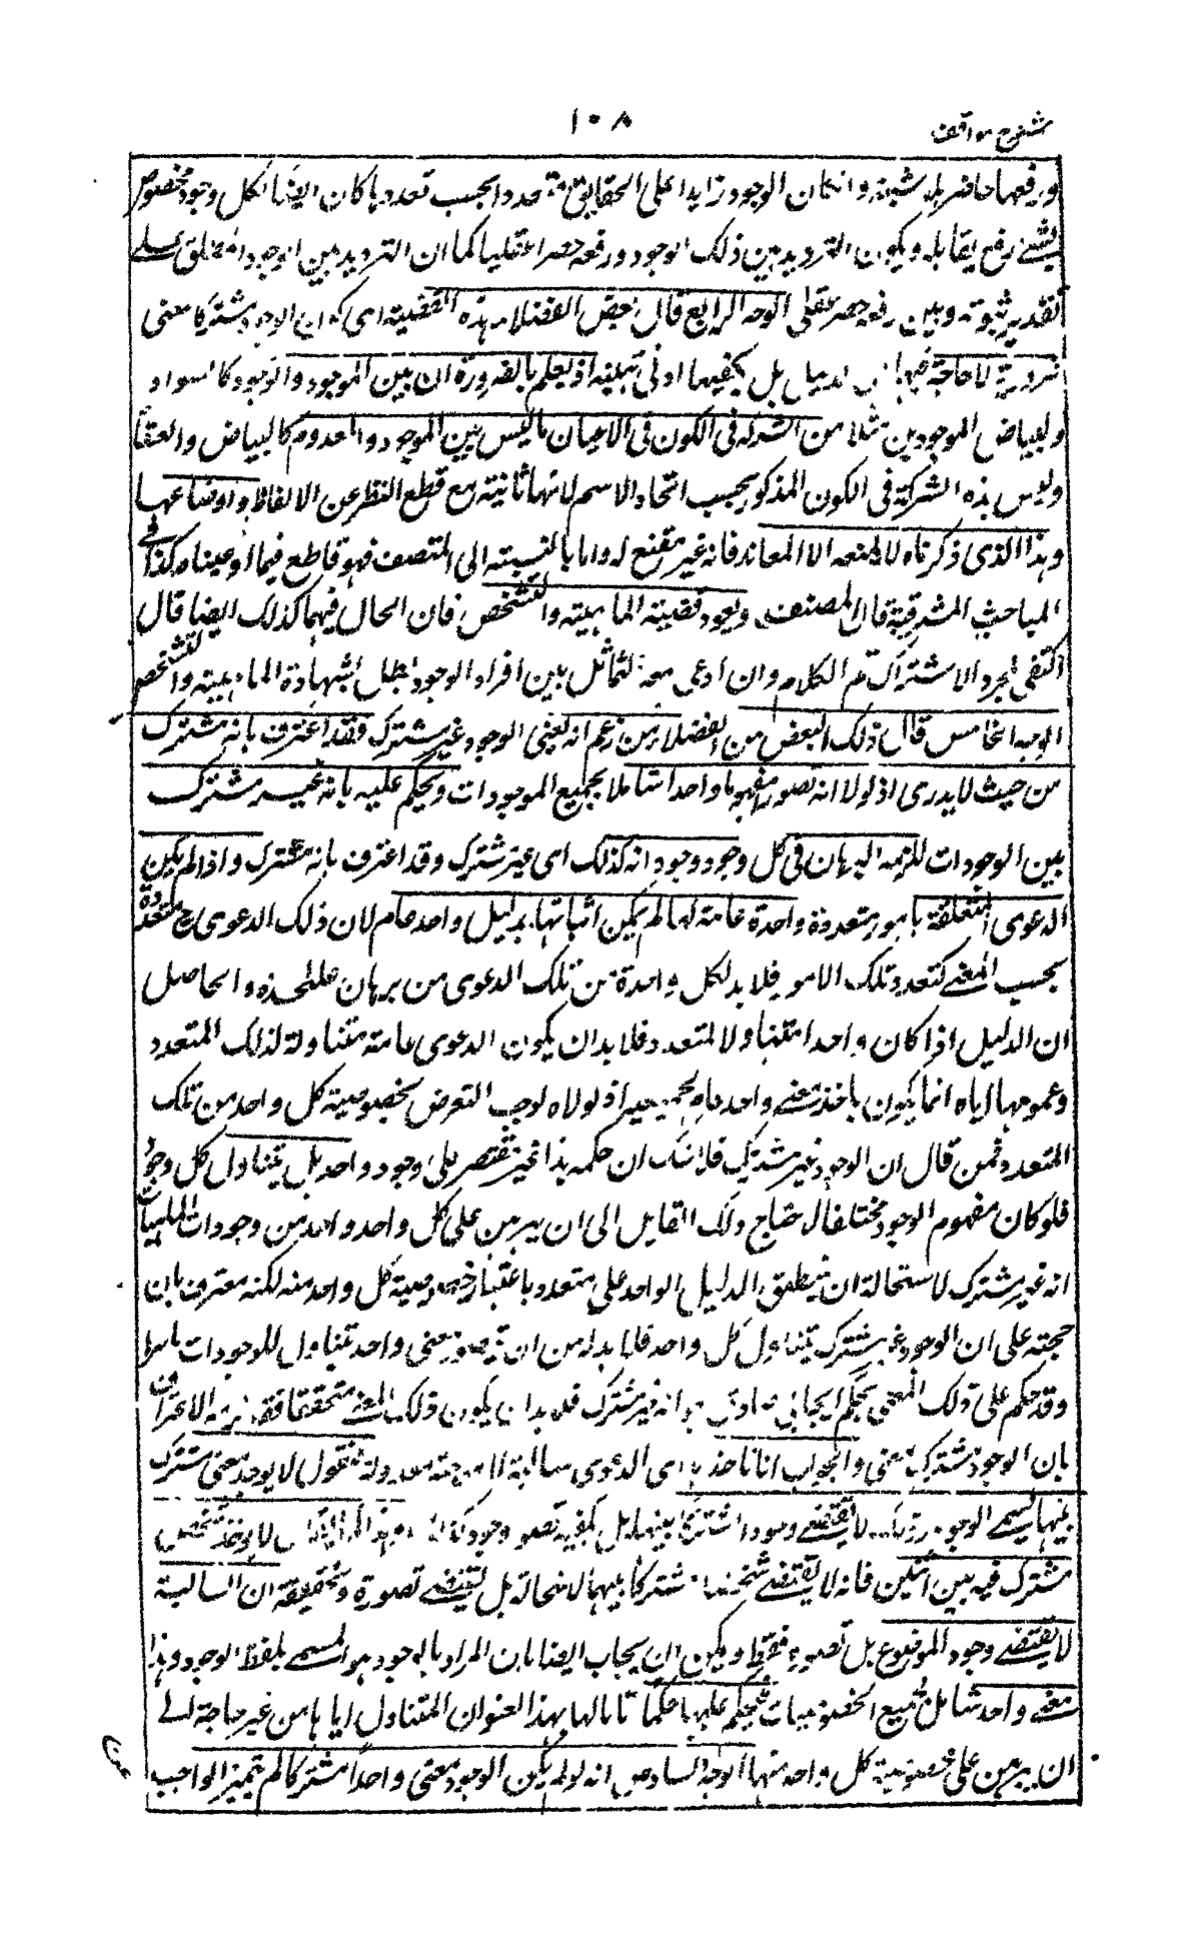 شرح مواقف
١٠٨
ورفعها حاضر بلا شبهة وان كان الوجود زايدا على الحقايق متعددا بحسب تعددها كان ايضا لكل وجود مخصوص
بشئ رفع يقابله ويكون الترديد بين ذلك الوجود ورفعه حصرا عقليا كما ان الترديد بين الوجود المطلق على
تقدير ثبوته وبين رفعه حصر عقلى الوجه الرابع قال بعض الفضلاء هذه القضية اى كون الوجود مشتركا معنى
ضرورية لا حاجة فيها الى دليل بل يكفيها ادنى تنبيه اذ يعلم بالضرورة ان بين الموجود والموجود كالسواد
والبياض الموجودين مثلا من الشركة فى الكون فى الاعيان ما ليس بين الموجود والمعدوم كالبياض والعنقا
وليس هذه الشركة فى الكون المذكور بحسب اتحاد الاسم لانها ثابتة مع قطع النظر عن الالفاظ واوضاعها
وهذا الذى ذكرناه لا يمنعه الا المعاند فانه غير مقنع له واما بالنسبة الى المتصف فهو قاطع فيما ادعيناه كذا فى
المباحث المشرقية قال المصنف ويعود قضية الماهية والتشخص فان الحال فيهما كذلك ايضا قال
اكتفى بمجرد الاشتراك تم الكلام وان ادعى معه التماثل بين افراد الوجود بطل بشهادة الماهية والتشخص
الوجه الخامس قال ذلك البعض من الفضلاء من زعم انه يعنى الوجود غير مشترك فقد اعترف بانه مشترك
من حيث لا يدرى اذ لولا انه تصور مفهوما واحدا شاملا لجميع الموجودات ويحكم عليه بانه غير مشترك
بين الوجودات للزمه البرهان فى كل وجود وجود انه كذلك اى غير مشترك وقد اعترف بانه مشترك واذا لم يكن
الدعوى المتعلقة بامور متعددة واحدة عامة لها لم يكن اثباتها بدليل واحد عام لان ذلك الدعوى ح متعددة
بحسب المعنى كتعدد تلك الامور فلا بد لكل واحدة من تلك الدعوى من برهان علىحده والحاصل
ان الدليل اذا كان واحدا متناولا لمتعدد فلا بد ان يكون الدعوى عامة متناولة لذلك المتعدد
وعمومها اياه انما يكون باخذ معنى واحد عام لجميعه اذ لولاه لوجب التعرض بخصوصية كل واحد من تلك
المتعدد فمن قال ان الوجود غير مشترك فلا شك ان حكمه هذا غير مقتصر على وجود واحد بل يتناول كل وجود
فلو كان مفهوم الوجود مختلفا لاحتاج ذلك القايل الى ان يبرهن على كل واحد واحد من وجودات الماهيات
انه غير مشترك لاستحالة ان ينطبق الدليل الواحد على متعدد باعتبار خصوصية كل واحد منه لكنه معترف بان
حجته على ان الوجود غير مشترك يتناول كل واحد فلا بد له من ان يتصور معنى واحد يتناول للوجودات باسرها
وقد حكم على ذلك المعنى بحكم ايجابى صادق هو انه غير مشترك فلا بد ان يكون ذلك المعنى متحققا فقد لزمه الاعتراف
بان الوجود مشترك معنى والجواب انا ناخذ اى الدعوى سالبة لا موجبة معدولة فنقول لا يوجد معنى مشترك
بينها يسمى الوجود لا يقتضى وجودا مشتركا بينها بل يكفيه تصور وجود كذلك لا يوجد شخص
مشترك فيه بين اثنين فانه لا يقتضى شخصا مشتركا بينهما لاستحالة بل يقتضى تصوره وتحقيقه ان السالبة
لا يقتضى وجود الموضوع بل تصوره فقط ويمكن ان يجاب ايضا بان المراد بالوجود هو المسمى بلفظ الوجود وهذا
معنى واحد شامل لجميع الخصوصيات فيحكم عليها حكما متناولا لها بهذا العنوان المتناول اياها من غير حاجة الى
ان يبرهن على خصوصية كل واحد منها الوجه السادس انه لو لم يكن الوجود معنى واحدا مشتركا لم يتميز الواجب